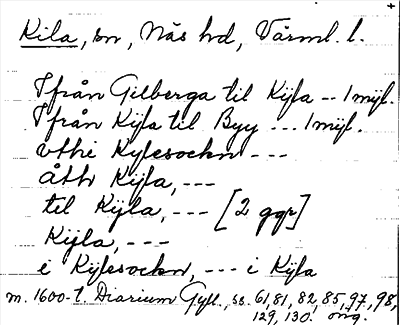 Kila, sn, Näs hd, Värml. l.
Ifrån Gilberga til Kijla -- 1 mijl.
Ifrån Kijla til Byy --- 1 mijl.
vthi Kylesockn ---
åth Kijla, ---
til Kijla, --- [2 ggr]
Kijla, ---
i Kijlesockn, --- i Kijla
m. 1600-t. Diarium Gyll., ss. 61, 81, 82, 85, 97, 98,
129, 130. orig.